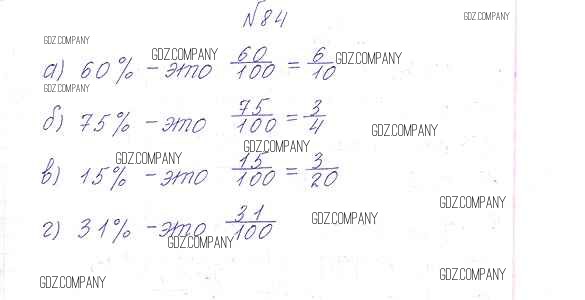 №84
GDZ.COMPANY
GDZ.COMPANY
GDZ.COMPANY
а) 60% - это 60/100 = 6/10
GDZ.COMPANY
GDZ.COMPANY
б) 75% - это 75/100 = 3/4
GDZ.COMPANY
GDZ.COMPANY
GDZ.COMPANY
в) 15% - это 15/100 = 3/20
GDZ.COMPANY
г) 31% - это 31/100
GDZ.COMPANY
GDZ.COMPANY
GDZ.COMPANY
GDZ.COMPANY